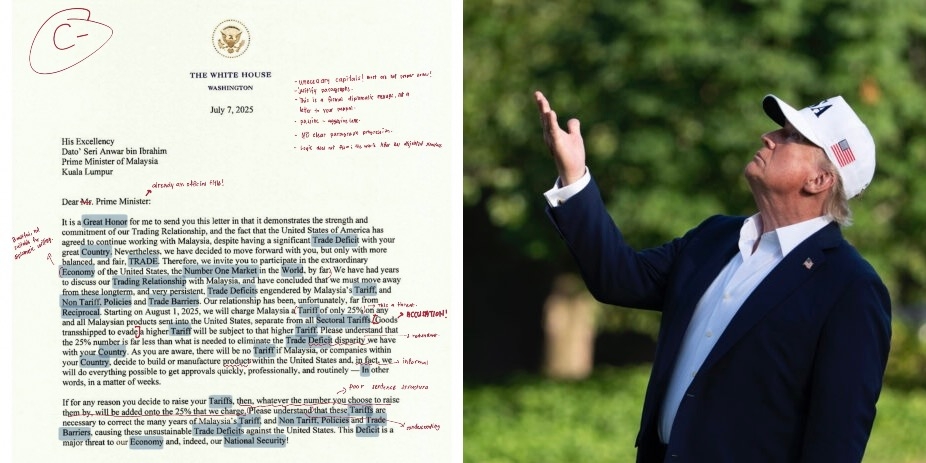 C-
THE WHITE HOUSE
WASHINGTON
July 7, 2025
- unnecessary capitals! most are not proper nouns!
- justify paragraphs.
- This is a formal diplomatic message, not a
letter to your
- NO clear paragraph progression.
His Excellency
Dato' Seri Anwar bin Ibrahim
Prime Minister of Malaysia
Kuala Lumpur
already an official title!
Dear Mr. Prime Minister:
It is a Great Honor for me to send you this letter in that it demonstrates the strength and
commitment of our Trading Relationship, and the fact that the United States of America has
agreed to continue working with Malaysia, despite having a significant Trade Deficit with your
great Country. Nevertheless, we have decided to move forward with you, but only with more
balanced, and fair, TRADE. Therefore, we invite you to participate in the extraordinary
Economy of the United States, the Number One Market in the World, by far. We have had years
to discuss our Trading Relationship with Malaysia, and have concluded that we must move away
from these longterm, and very persistent, Trade Deficits engendered by Malaysia's Tariff, and
Non Tariff, Policies and Trade Barriers. Our relationship has been, unfortunately, far from
Reciprocal. Starting on August 1, 2025, we will charge Malaysia a Tariff of only 25% on any
this a threat.
and all Malaysian products sent into the United States, separate from all Sectoral Tariffs. Goods
ACCUSATION!
transshipped to evade a higher Tariff will be subject to that higher Tariff. Please understand that
the 25% number is far less than what is needed to eliminate the Trade Deficit disparity we have
with your Country. As you are aware, there will be no Tariff if Malaysia, or companies within
your Country, decide to build or manufacture product within the United States and, in fact, we
informal
will do everything possible to get approvals quickly, professionally, and routinely — In other
words, in a matter of weeks.
poor sentence structure
If for any reason you decide to raise your Tariffs, then, whatever the number you choose to raise
them by, will be added onto the 25% that we charge. Please understand that these Tariffs are
necessary to correct the many years of Malaysia's Tariff, and Non Tariff, Policies and Trade
Barriers, causing these unsustainable Trade Deficits against the United States. This Deficit is a
condescending
major threat to our Economy and, indeed, our National Security!